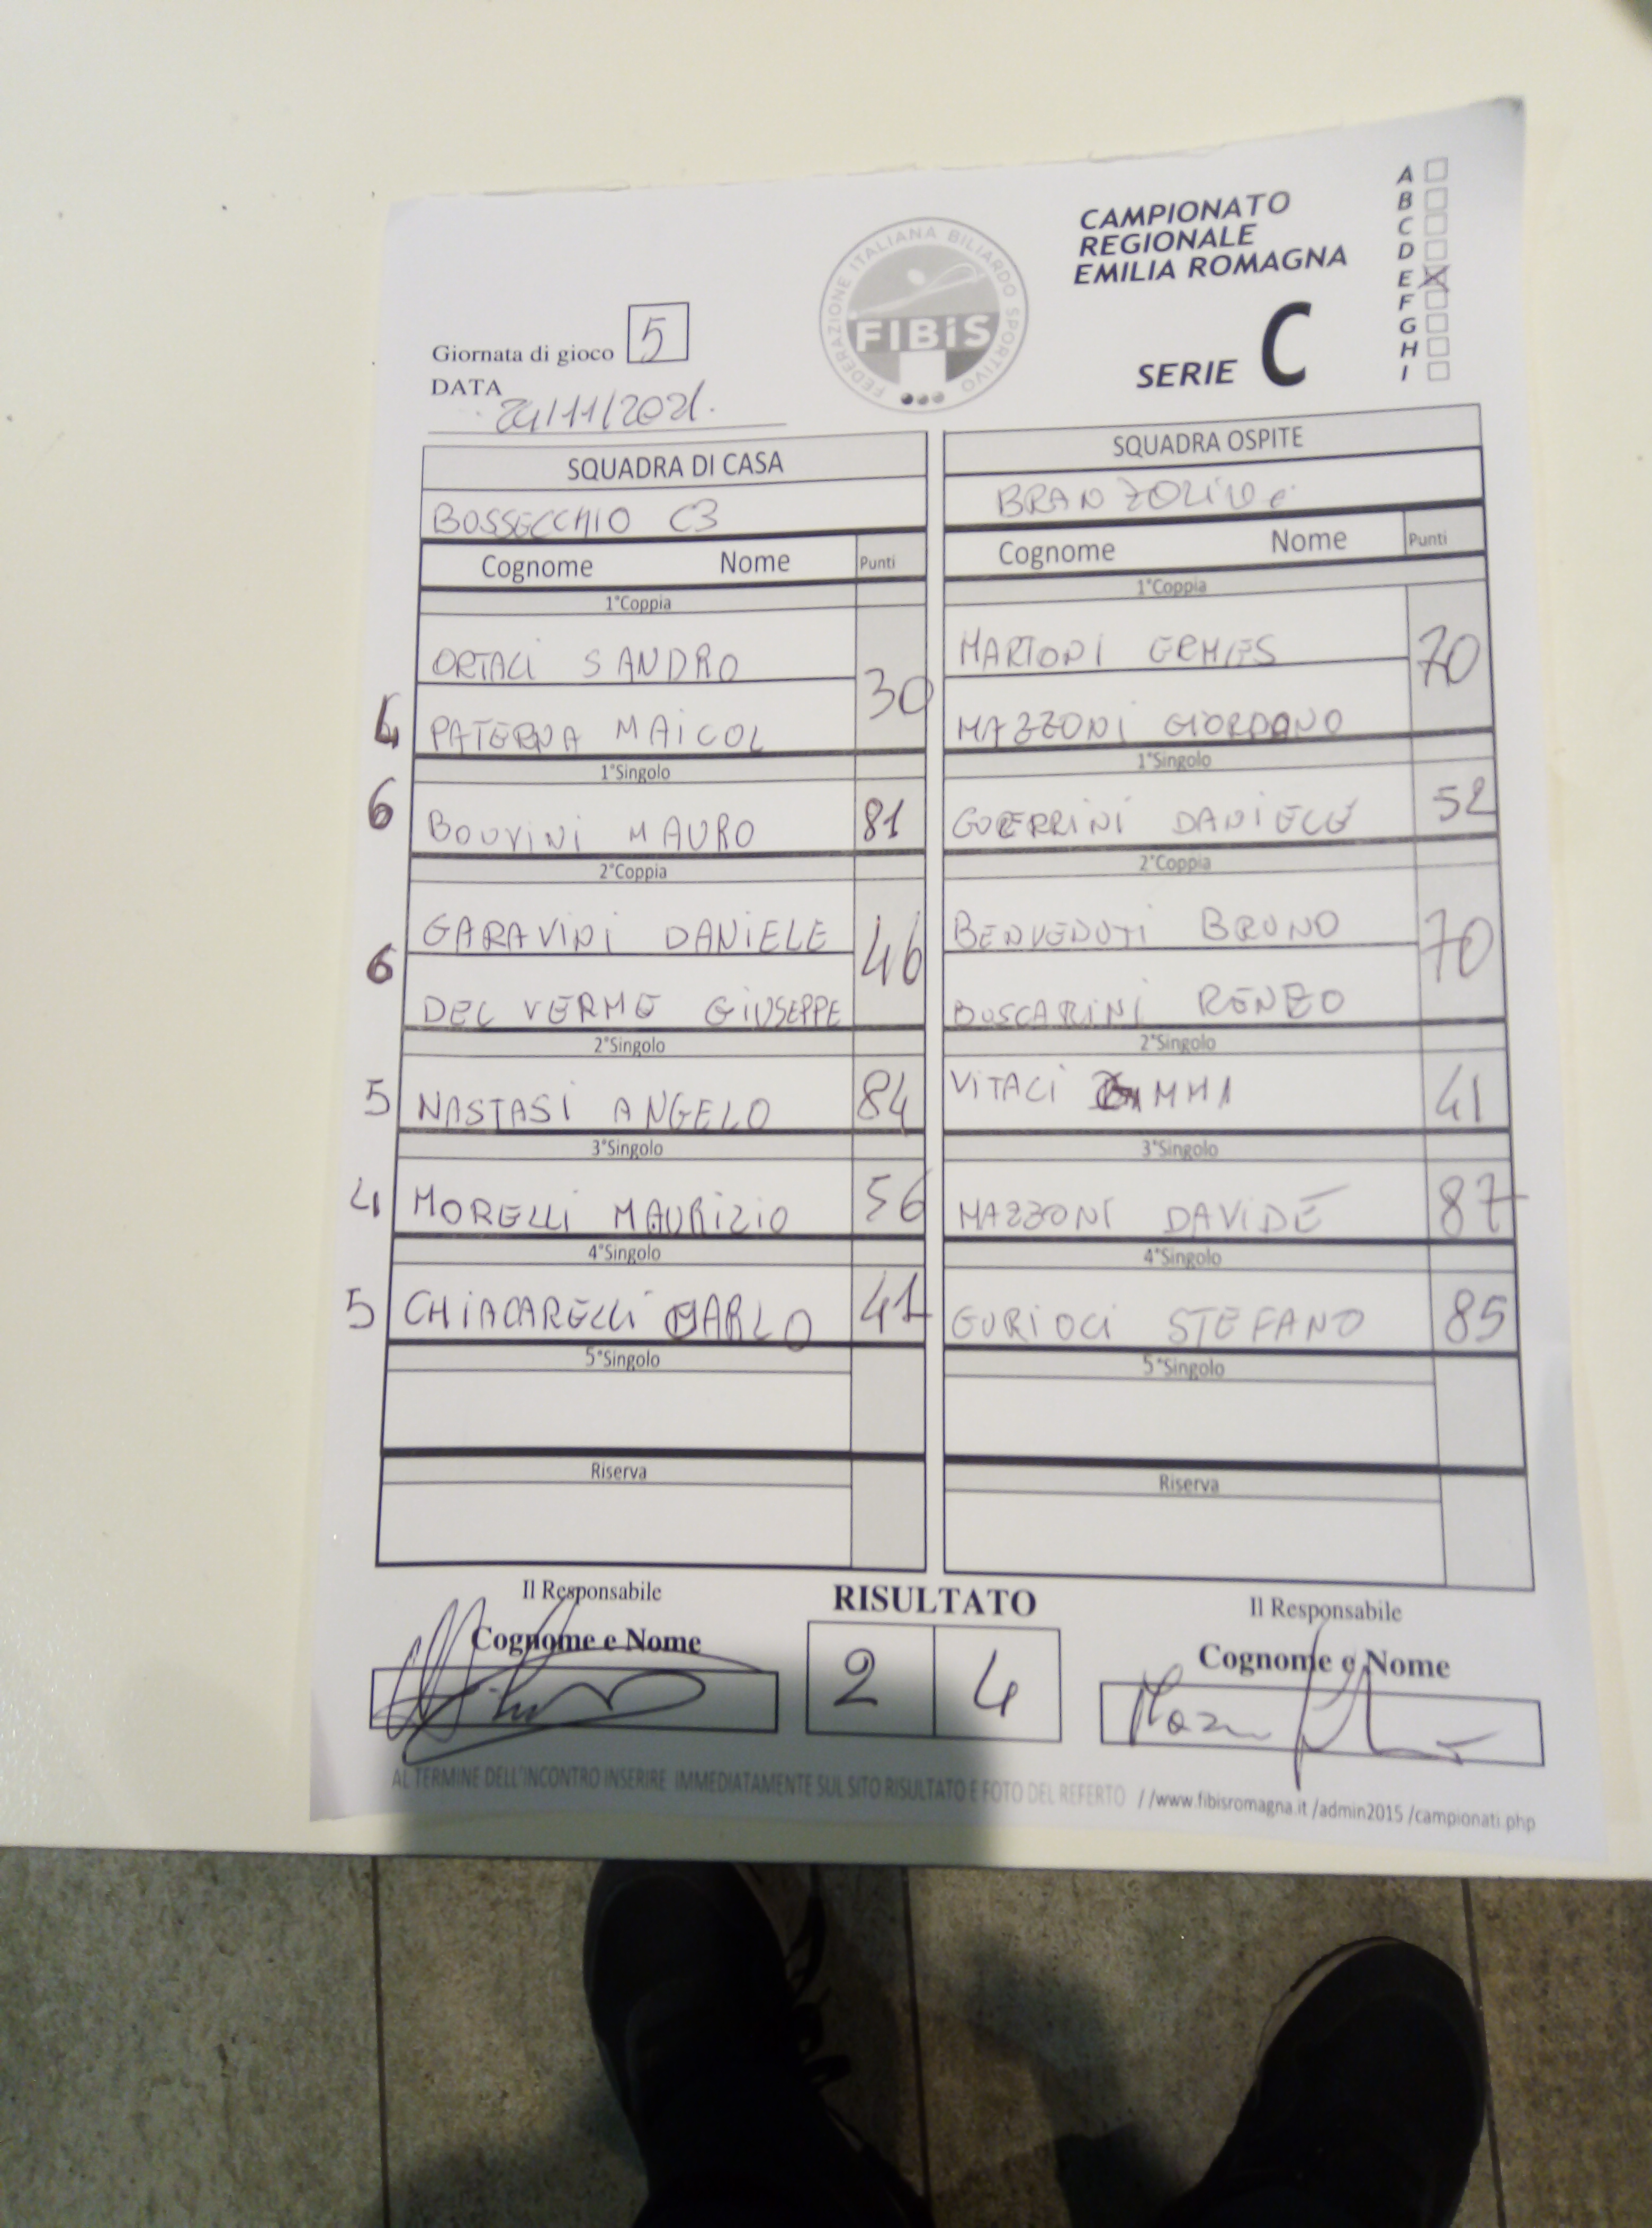 CAMPIONATO
REGIONALE
EMILIA ROMAGNA
SERIE C
A
B
C
D
E
F
G
H
I
FEDERAZIONE ITALIANA BILIARDO SPORTIVO
FIBiS
Giornata di gioco 5
DATA
24/11/2021.
SQUADRA DI CASA
BOSSECCHIO C3
Cognome Nome Punti
1°Coppia
ORTALI SANDRO
30
4 PATERNA MAICOL
1°Singolo
6 BOUVINI MAURO 81
2°Coppia
GARAVINI DANIELE
46
6
DEL VERME GIUSEPPE
2°Singolo
5 NASTASI ANGELO 84
3°Singolo
4 MORELLI MAURIZIO 56
4°Singolo
5 CHIACARELLI CARLO 41
5°Singolo
Riserva
SQUADRA OSPITE
Cognome Nome Punti
1°Coppia
MARTONI ERMES
70
MAZZONI GIORDANO
1°Singolo
GUERRINI DANIELE 52
2°Coppia
BENVENUTI BRUNO
70
BUSCARINI RENZO
2°Singolo
VITALI 41
3°Singolo
MAZZONI DAVIDE 87
4°Singolo
GURIOLI STEFANO 85
5°Singolo
Riserva
Il Responsabile
Cognome e Nome
RISULTATO
2 4
Il Responsabile
Cognome e Nome
AL TERMINE DELL'INCONTRO INSERIRE IMMEDIATAMENTE SUL SITO RISULTATO E FOTO DEL REFERTO //www.fibisromagna.it /admin2015 /campionati.php